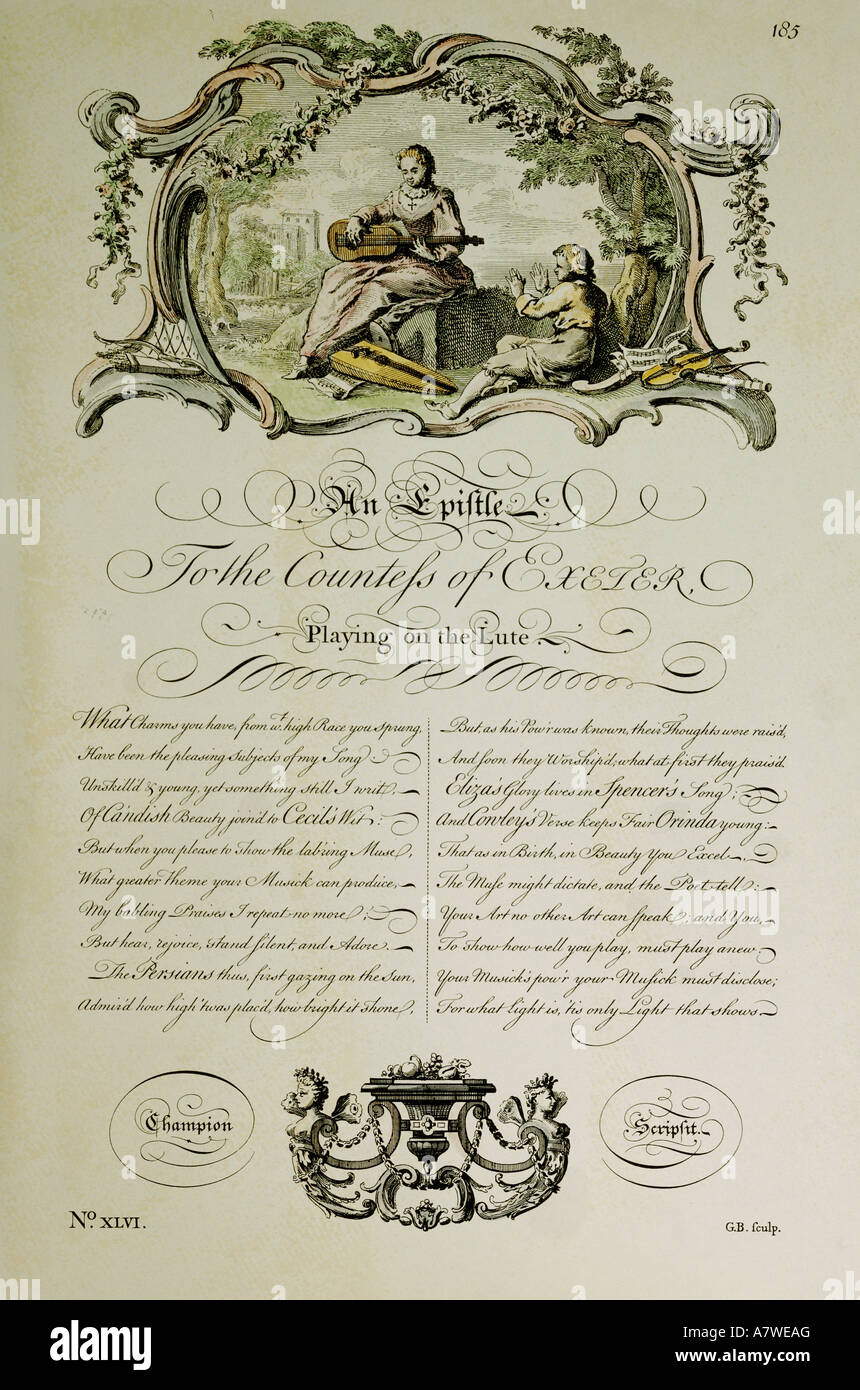 185
An Epistle
To the Countess of EXETER,
Playing on the Lute.
What Charms you have, from wt. high Race you sprung,
Have been the pleasing Subjects of my Song:
Unskill'd & young, yet something still I writ,
Of Ca'ndish Beauty join'd to Cecil's Wit:
But when you please to show the lab'ring Muse,
What greater theme your Musick can produce,
My babling Praises I repeat no more;
But hear, rejoice, stand silent, and Adore.
The Persians thus, first gazing on the Sun,
Admir'd how high 'twas plac'd, how bright it shone,
But, as his Pow'r was known, their Thoughts were rais'd,
And soon they Worship'd, what at first they prais'd.
Eliza's Glory lives in Spencer's Song;
And Cowley's Verse keeps Fair Orinda young:
That as in Birth, in Beauty You Excel,
The Muse might dictate, and the Poet tell:
Your Art no other Art can speak; and You,
To show how well you play, must play anew:
Your Musick's pow'r your Musick must disclose;
For what Light is, 'tis only Light that shows.
Champion
Scripsit.
No. XLVI.
G.B. sculp.
alamy
Image ID: A7WEAG
www.alamy.com